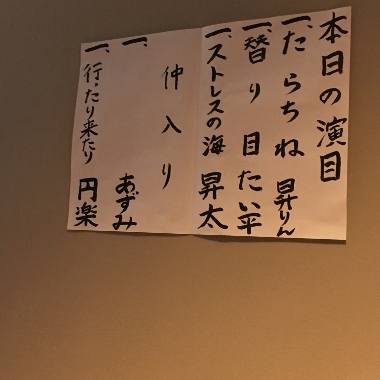 本日の演目
一、たらちね 昇りん
一、替り目 たい平
一、ストレスの海 昇太
仲入り
一、 あずみ
一、行ったり来たり 円楽